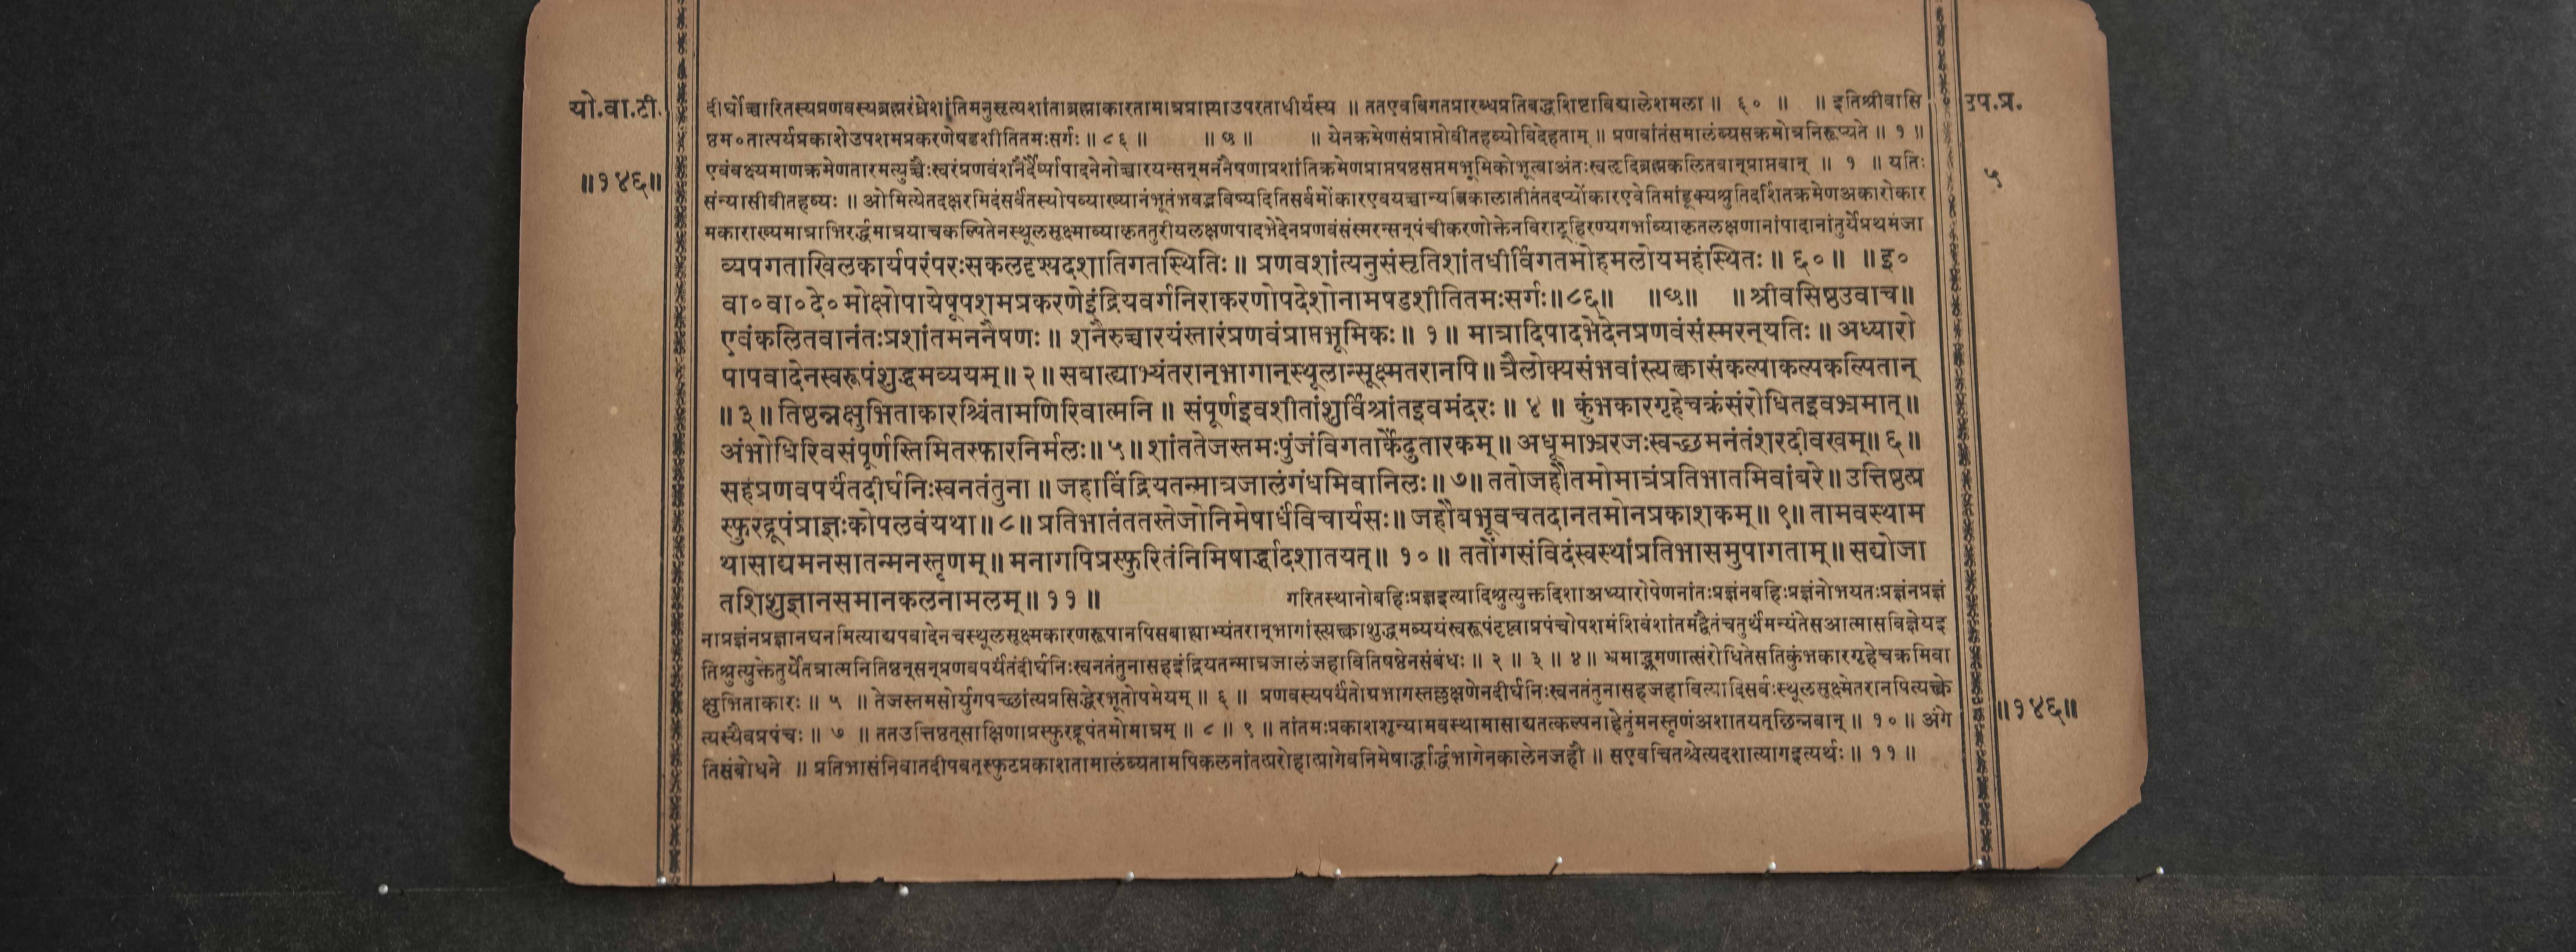 यो.वा.टी.
॥१४६॥
उप.प्र.
५
दीर्घोच्चारितस्यप्रणवस्यब्रह्मरंध्रेशांतिमनुसृत्यशांताब्रह्माकारतामात्रप्राप्त्याउपरताधीर्यस्य ॥ ततएवविगतप्रारब्धप्रतिबद्धशिष्टाविद्यालेशमला ॥ ६० ॥ ॥ इतिश्रीवासि
ष्ठम०तात्पर्यप्रकाशेउपशमप्रकरणेषडशीतितमःसर्गः ॥ ८६ ॥ ॥ छ ॥ ॥ येनक्रमेणसंप्राप्तोवीतहव्योविदेहताम् ॥ प्रणवांतंसमालंब्यसक्रमोत्रनिरूप्यते ॥ १ ॥
एवंवक्ष्यमाणक्रमेणतारमत्युच्चैःस्वरंप्रणवंशनैर्दैर्घ्यापादनेनोच्चारयन्सन्मननैषणाप्रशांतिक्रमेणप्राप्तषष्ठसप्तमभूमिकोभूत्वाअंतःस्वहृदिब्रह्मकलितवान्प्राप्तवान् ॥ १ ॥ यतिः
संन्यासीवीतहव्यः ॥ ओमित्येतदक्षरमिदंसर्वंतस्योपव्याख्यानंभूतंभवद्भविष्यदितिसर्वमोंकारएवयच्चान्यत्त्रिकालातीतंतदप्योंकारएवेतिमांडूक्यश्रुतिदर्शितक्रमेणअकारोकार
मकाराख्यमात्राभिरर्द्धमात्रयाचकल्पितेनस्थूलसूक्ष्माव्याकृततुरीयलक्षणपादभेदेनप्रणवंसंस्मरन्सन्पंचीकरणोक्तेनविराट्हिरण्यगर्भाव्याकृतलक्षणानांपादानांतुर्येप्रथमंजा
व्यपगताखिलकार्यपरंपरःसकलदृश्यदशातिगतस्थितिः ॥ प्रणवशांत्यनुसंसृतिशांतधीर्विगतमोहमलोयमहंस्थितः ॥ ६० ॥ ॥ इ०
वा०वा०दे०मोक्षोपायेषूपशमप्रकरणेइंद्रियवर्गनिराकरणोपदेशोनामषडशीतितमःसर्गः॥८६॥ ॥छ॥ ॥ श्रीवसिष्ठउवाच॥
एवंकलितवानंतःप्रशांतमननैषणः ॥ शनैरुच्चारयंस्तारंप्रणवंप्राप्तभूमिकः ॥ १ ॥ मात्रादिपादभेदेनप्रणवंसंस्मरन्यतिः ॥ अध्यारो
पापवादेनस्वरूपंशुद्धमव्ययम् ॥ २ ॥ सबाह्याभ्यंतरान्भागान्स्थूलान्सूक्ष्मतरानपि ॥ त्रैलोक्यसंभवांस्त्यक्त्वासंकल्पाकल्पकल्पितान्
॥ ३ ॥ तिष्ठन्नक्षुभिताकारश्चिंतामणिरिवात्मनि ॥ संपूर्णइवशीतांशुर्विश्रांतइवमंदरः ॥ ४ ॥ कुंभकारगृहेचक्रंसंरोधितइवभ्रमात् ॥
अंभोधिरिवसंपूर्णस्तिमितस्फारनिर्मलः ॥ ५ ॥ शांततेजस्तमःपुंजंविगतार्केंदुतारकम् ॥ अधूमाभ्ररजःस्वच्छमनंतंशरदीवखम् ॥ ६ ॥
सहंप्रणवपर्यंतदीर्घनिःस्वनतंतुना ॥ जहाविंद्रियतन्मात्रजालंगंधमिवानिलः ॥ ७॥ ततोजहौतमोमात्रंप्रतिभातमिवांबरे ॥ उत्तिष्ठत्प्र
स्फुरद्रूपंप्राज्ञःकोपलवंयथा ॥ ८ ॥ प्रतिभातंततस्तेजोनिमेषार्धंविचार्यसः ॥ जहौबभूवचतदानतमोनप्रकाशकम् ॥ ९॥ तामवस्थाम
थासाद्यमनसातन्मनस्तृणम् ॥ मनागपिप्रस्फुरितंनिमिषार्द्धादशातयत् ॥ १० ॥ ततोंगसंविदंस्वस्थांप्रतिभासमुपागताम् ॥ सद्योजा
तशिशुज्ञानसमानकलनामलम् ॥ ११ ॥
गरितस्थानोबहिःप्रज्ञइत्यादिश्रुत्युक्तदिशाअध्यारोपेणनांतःप्रज्ञंनबहिःप्रज्ञंनोभयतःप्रज्ञंनप्रज्ञं
नाप्रज्ञंनप्रज्ञानघनमित्याद्यपवादेनचस्थूलसूक्ष्मकारणरूपानपिसबाह्याभ्यंतरान्भागांस्त्यक्त्वाशुद्धमव्ययंस्वरूपंदृष्ट्वाप्रपंचोपशमंशिवंशांतमद्वैतंचतुर्थंमन्यंतेसआत्मासविज्ञेयइ
तिश्रुत्युक्तेतुर्येतत्रात्मनितिष्ठन्सन्प्रणवपर्यंतंदीर्घनिःस्वनतंतुनासहइंद्रियतन्मात्रजालंजहावितिषष्ठेनसंबंधः ॥ २ ॥ ३ ॥ ४ ॥ भ्रमाद्भ्रमणात्संरोधितेसतिकुंभकारगृहेचक्रमिवा
क्षुभिताकारः ॥ ५ ॥ तेजस्तमसोर्युगपच्छांत्यप्रसिद्धेरभूतोपमेयम् ॥ ६ ॥ प्रणवस्यपर्यंतोयभागस्तल्लक्षणेनदीर्घनिःस्वनतंतुनासहजहावित्यादिसर्वःस्थूलसूक्ष्मेतरानपित्यक्त्वे
त्यस्यैवप्रपंचः ॥ ७ ॥ ततउत्तिष्ठत्साक्षिणाप्रस्फुरद्रूपंतमोमात्रम् ॥ ८ ॥ ९ ॥ तांतमःप्रकाशशून्यामवस्थामासाद्यतत्कल्पनाहेतुंमनस्तृणंअशातयत्छिन्नवान् ॥ १० ॥ अंगे
तिसंबोधने ॥ प्रतिभासंनिवातदीपवत्स्फुटप्रकाशतामालंब्यतामपिकलनांतत्प्ररोहात्प्रागेवनिमेषार्द्धार्द्धभागेनकालेनजहौ ॥ सएवचितश्चेत्यदशात्यागइत्यर्थः ॥ ११ ॥
॥१४६॥